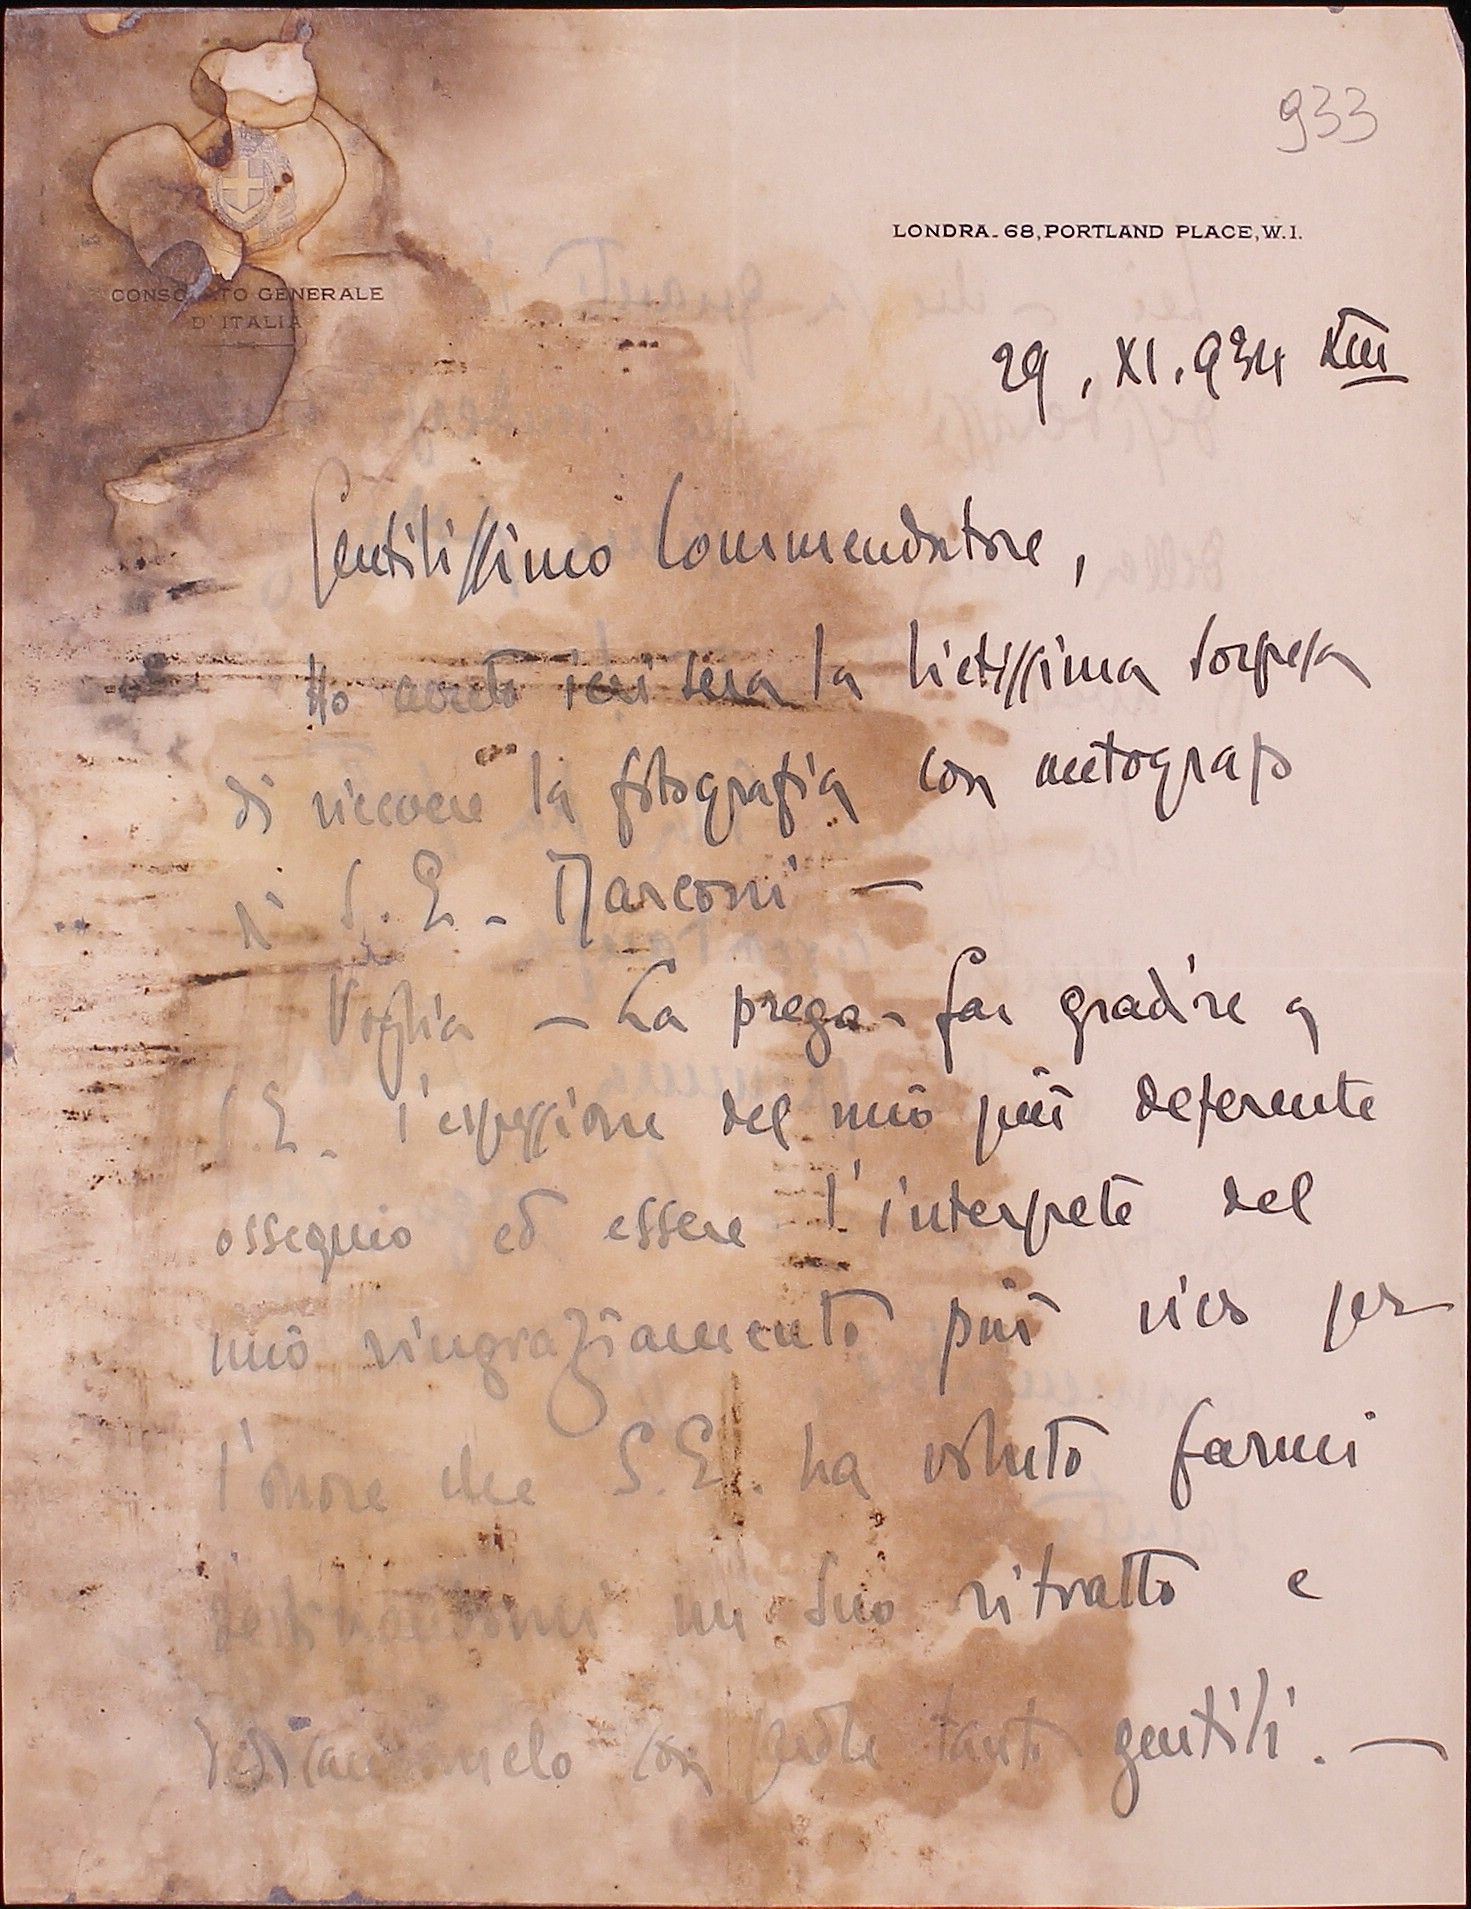 933
LONDRA_68, PORTLAND PLACE, W.1.
CONSOLATO GENERALE
D'ITALIA
29. XI. 934 XIII
Gentilissimo Commendatore,
Ho avuto ieri sera la lietissima sorpresa
di ricevere la fotografia con autografo
di S. E. Marconi —
Voglia – La prego – far gradire a
S.E. l'espressione del mio più deferente
ossequio ed essere l'interprete del
mio ringraziamento più vivo per
l'onore che S.E. ha voluto farmi
destinandomi un Suo ritratto e
dedicandomelo con parole tanto gentili. —